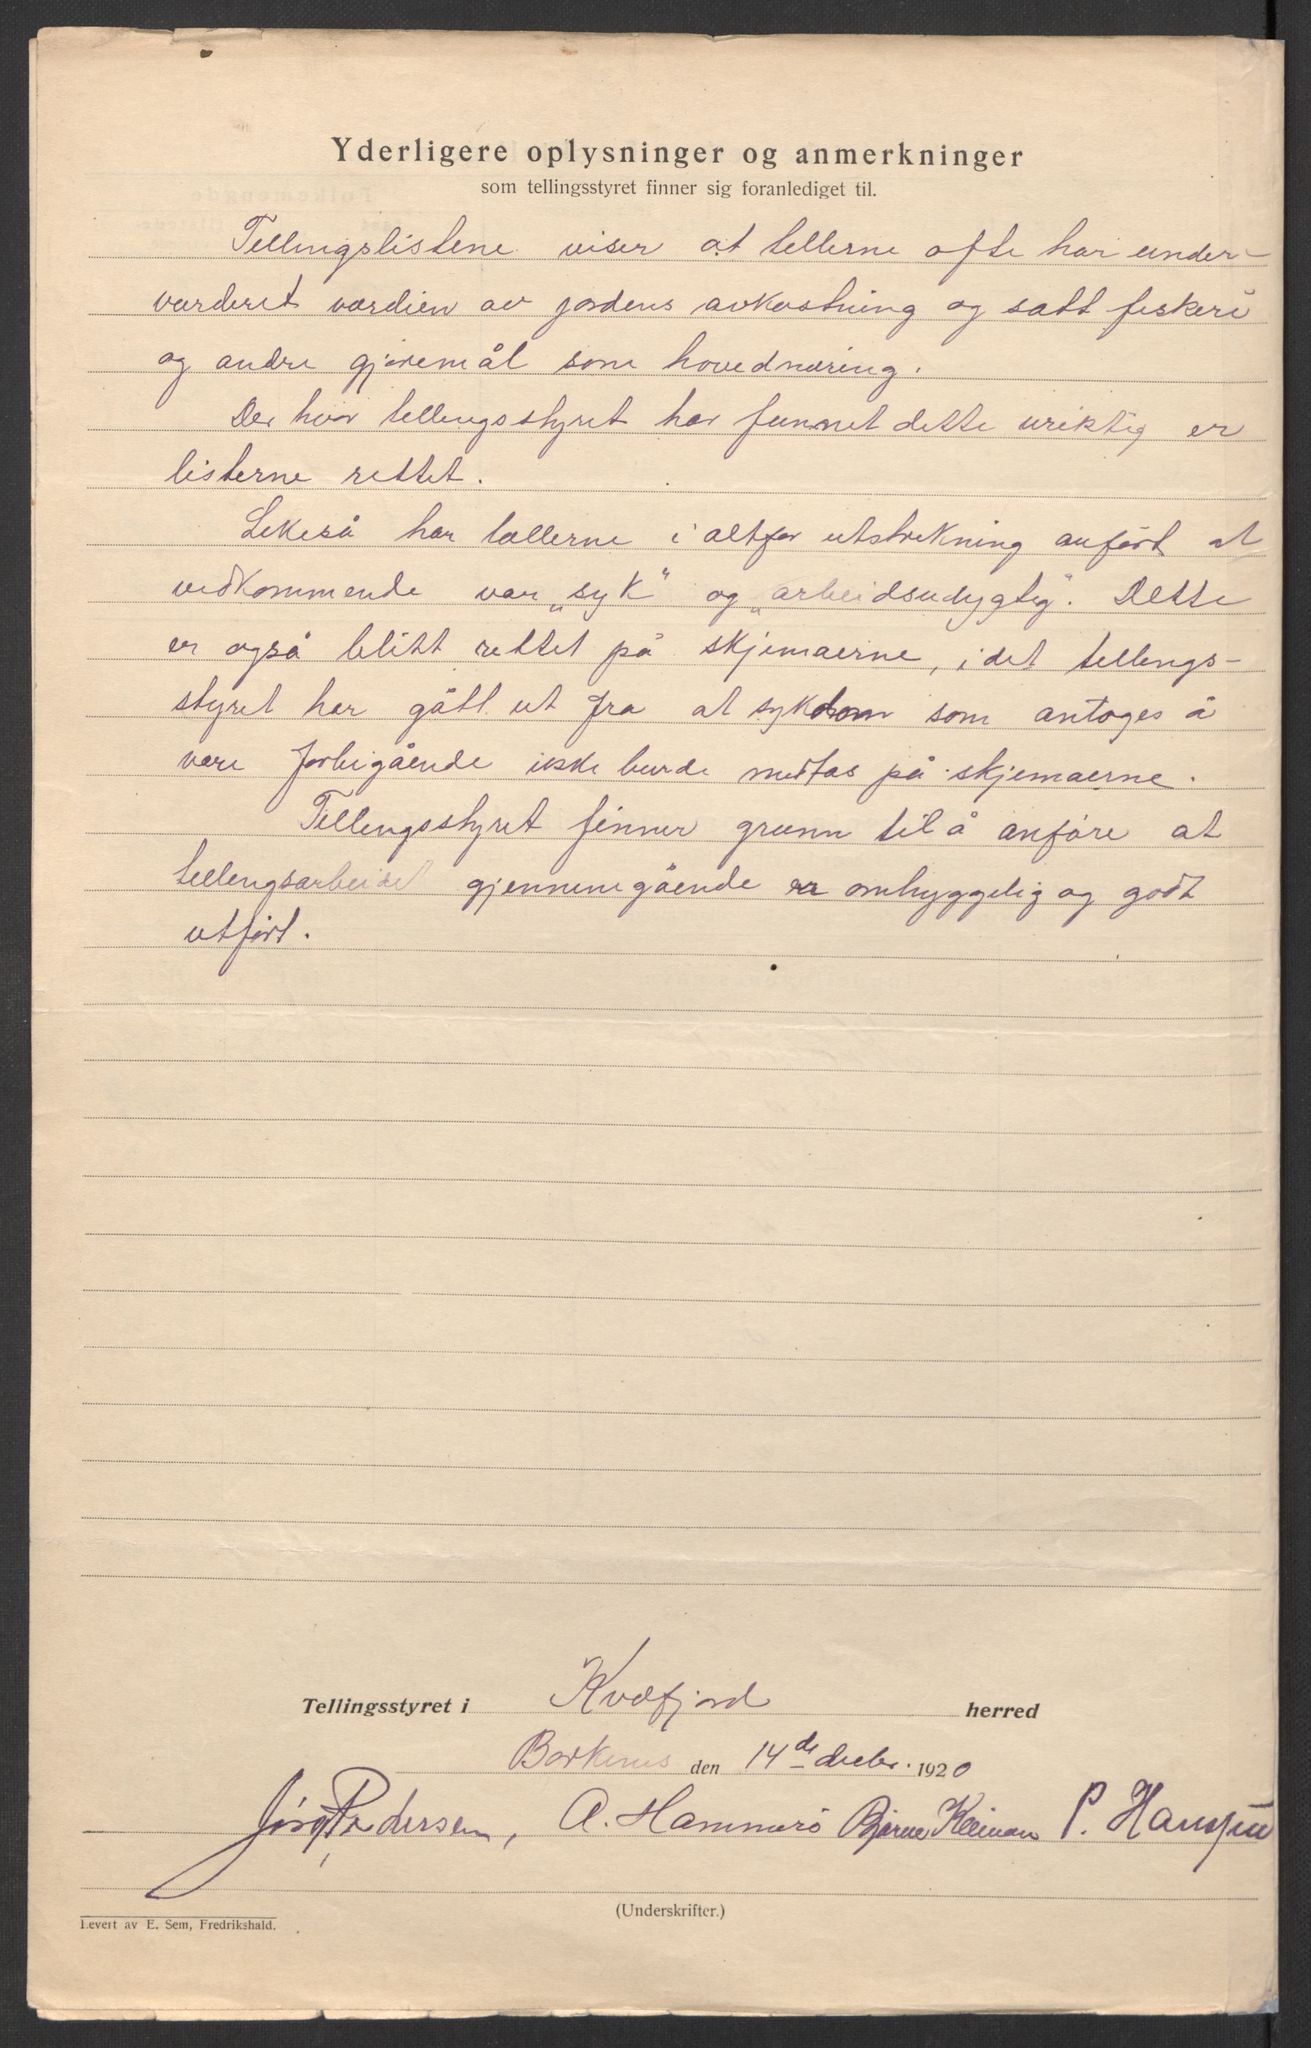 Yderligere oplysninger og anmerkninger
som tellingsstyret finner sig foranlediget til.
Tellingslistene viser at tellerne ofte har under-
vurderet værdien av jordens avkastning og satt fiskeri
og andre gjøremål som hovednæring.
Der hvor tellingsstyret har funnet dette uriktig er
listerne rettet.
Likeså har tællerne i altfor utstrekning anført at
vedkommende var „syk" og „arbeidsudygtig". Dette
er også blitt rettet på skjemaerne, i det tellings-
styret har gått ut fra at sykdom som antoges å
være forbigående ikke burde medtas på skjemaerne.
Tellingsstyret finner grunn til å anføre at
tellingsarbeidet gjennemgående er omhyggelig og godt
utført.
Tellingsstyret i Kvæfjord herred
Borkenes den 14de decbr. 1920
Jørg Pedersen, A. Hammerö Bjarne Kleivan P. Hanssen
(Underskrifter.)
Levert av E. Sem, Fredrikshald.